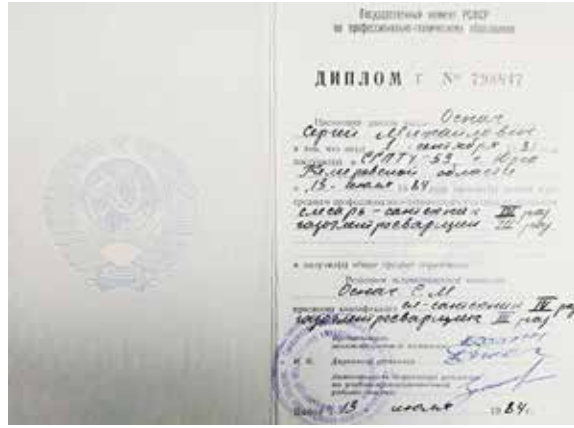 Государственный комитет РСФСР
по профессионально-техническому образованию
ДИПЛОМ Г № 798847
Настоящий диплом выдан Оснач
Сергей Михайлович
в том, что он(а) 1 сентября 81
поступил(а) в СГПТУ-59 г. Юрга
Кемеровской области
и 13 июля 1984
среднего профессионально-технического
слесарь-сантехник IV раз
газоэлектросварщик III раз
и получил(а) общее среднее образование.
Решением экзаменационной комиссии
Оснач С М
присвоена квалификация сл-сантехник IV раз
газоэлектросварщик III раз
Председатель
экзаменационной комиссии
М. П. Директор училища
Заместитель директора училища
по учебно-производственной
работе
13 июля 1984г.